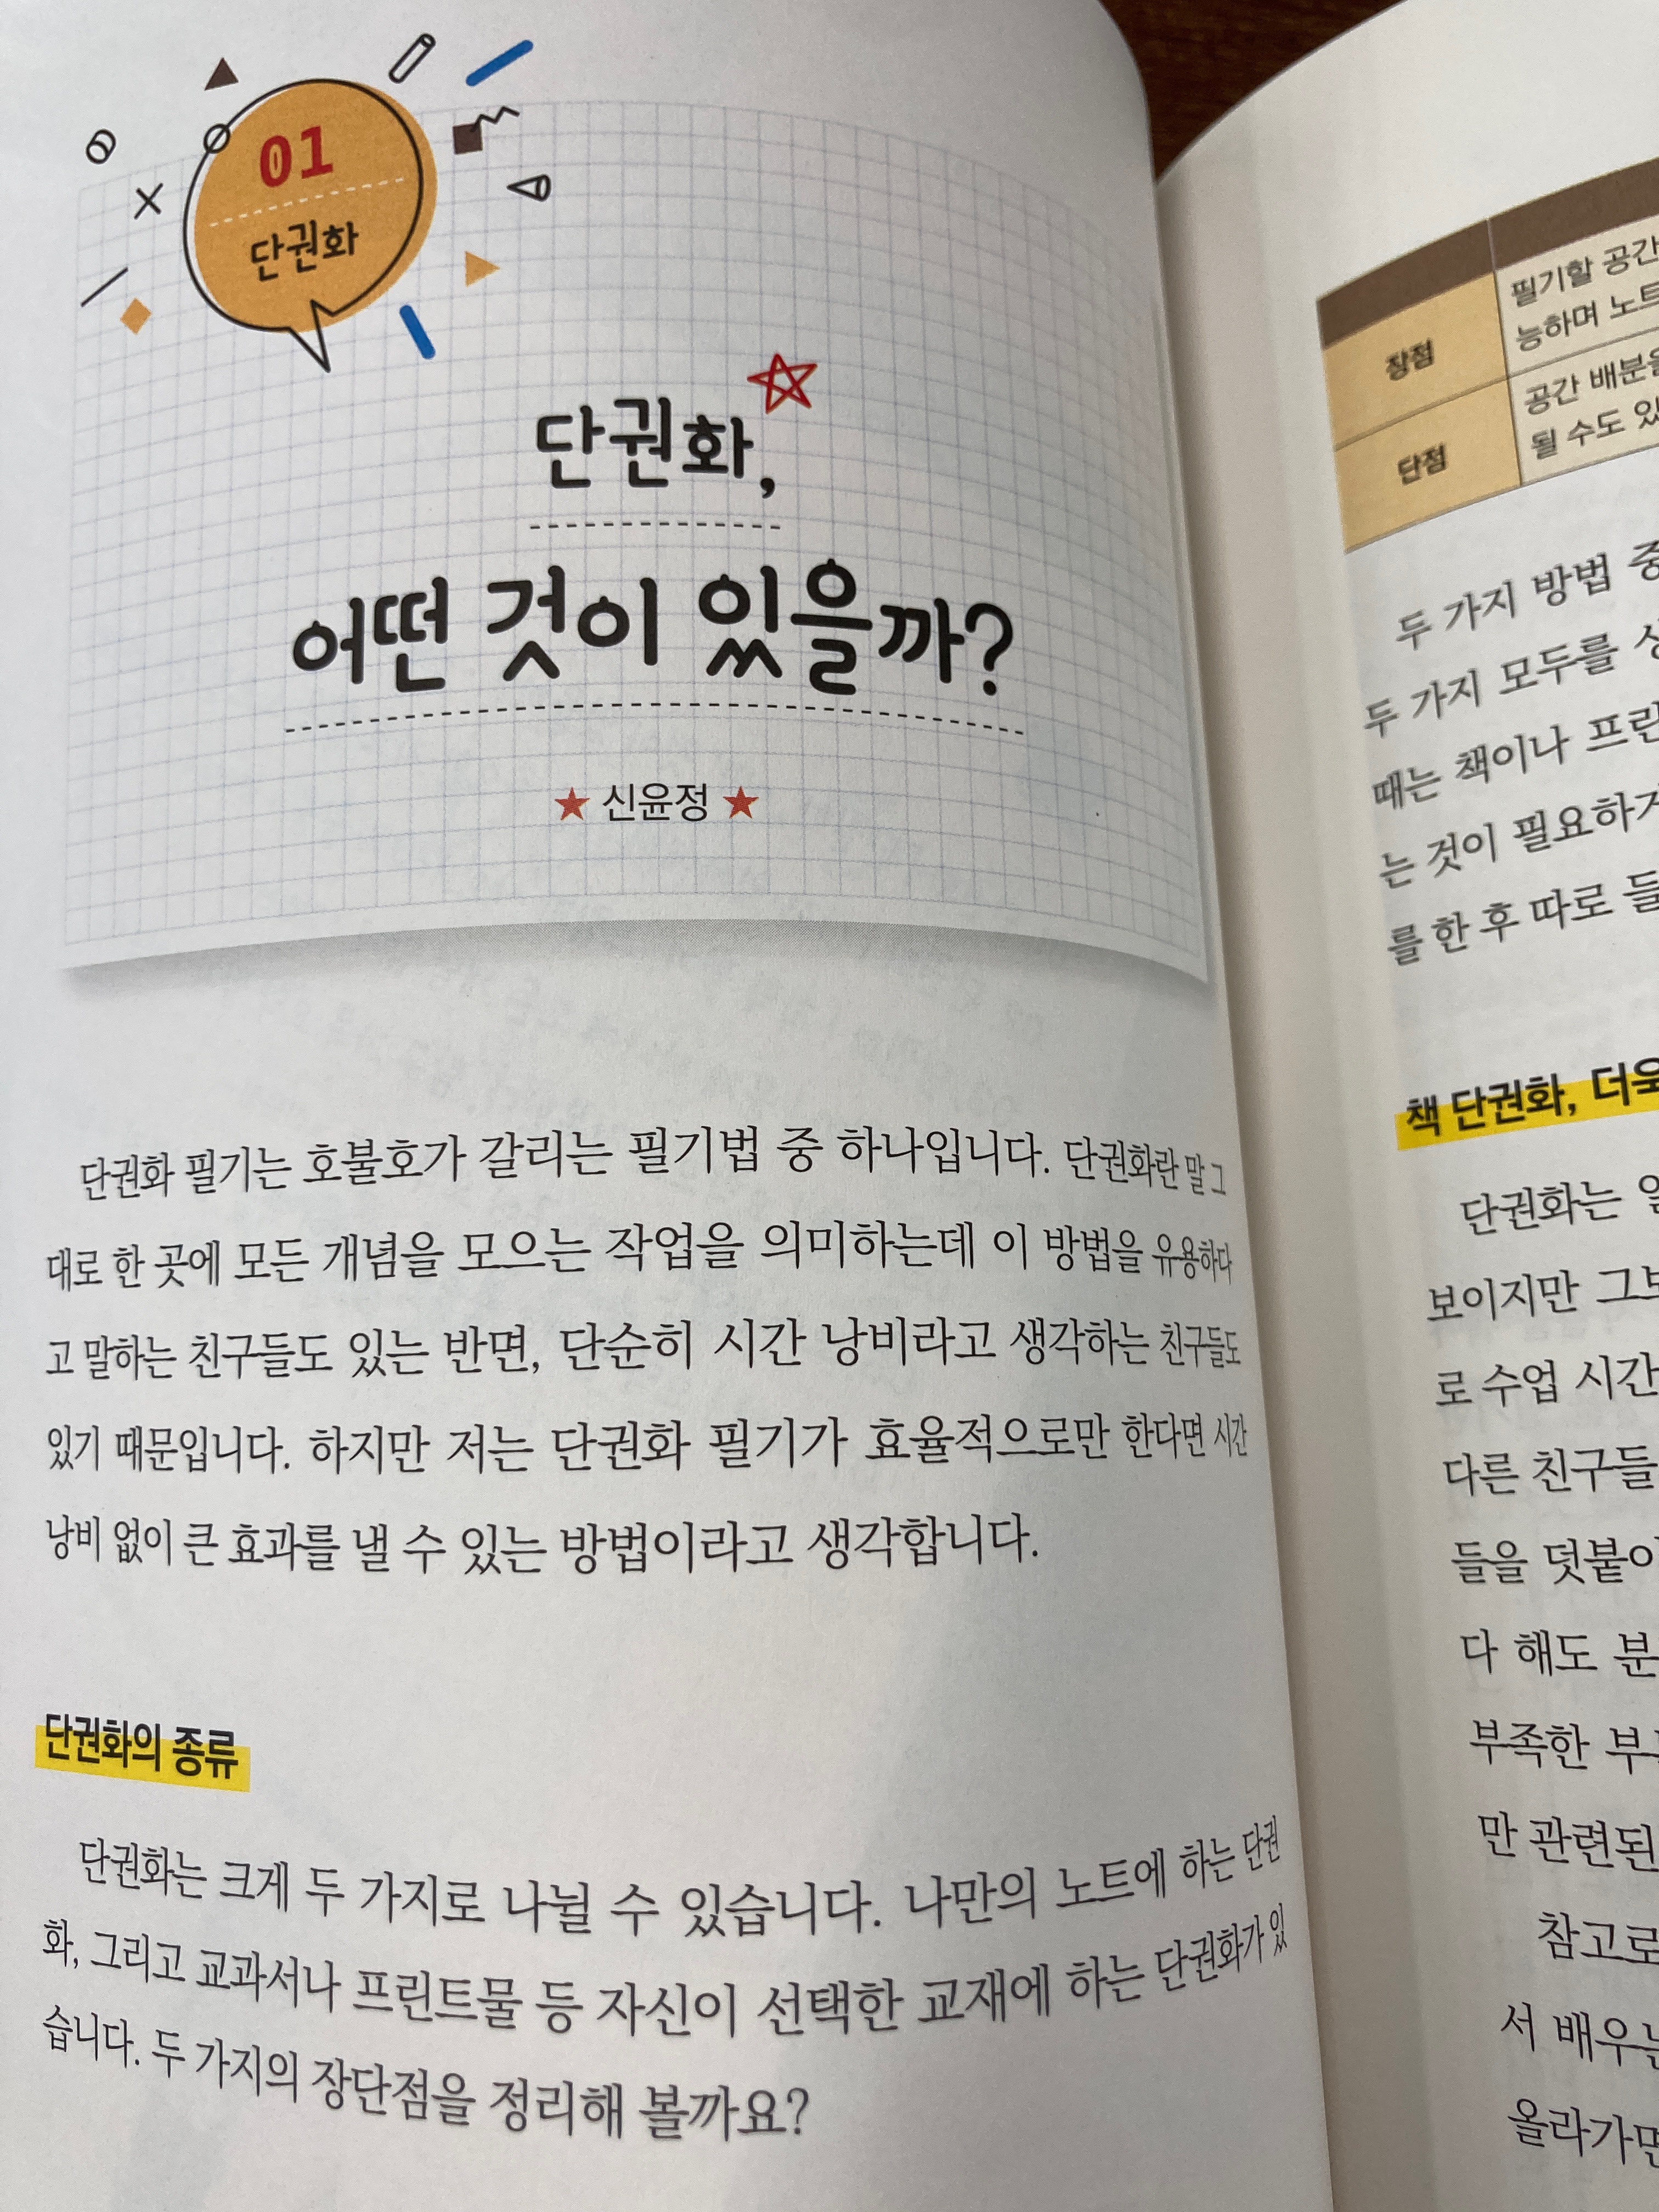 01
단권화
단권화,
어떤 것이 있을까?
★ 신윤정 ★
단권화 필기는 호불호가 갈리는 필기법 중 하나입니다. 단권화란 말 그
대로 한 곳에 모든 개념을 모으는 작업을 의미하는데 이 방법을 유용하다
고 말하는 친구들도 있는 반면, 단순히 시간 낭비라고 생각하는 친구들도
있기 때문입니다. 하지만 저는 단권화 필기가 효율적으로만 한다면 시간
낭비 없이 큰 효과를 낼 수 있는 방법이라고 생각합니다.
단권화의 종류
단권화는 크게 두 가지로 나뉠 수 있습니다. 나만의 노트에 하는 단권
화, 그리고 교과서나 프린트물 등 자신이 선택한 교재에 하는 단권화가 있
습니다. 두 가지의 장단점을 정리해 볼까요?
장점
필기할 공간
능하며 노트
단점
공간 배분을
될 수도 있
두 가지 방법 중
두 가지 모두를
때는 책이나 프린
는 것이 필요하거
를 한 후 따로 들
책 단권화, 더욱
단권화는
보이지만 그보
로 수업 시간
다른 친구들
들을 덧붙이
다 해도 분
부족한 부
만 관련된
참고로
서 배우는
올라가면